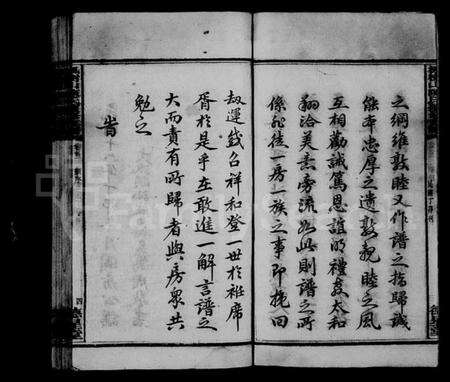 之綱維敦睦又作譜之指歸誠
能本忠厚之遺敦親睦之風
互相勸誡篤恩誼明禮義太和
翔洽美意旁流如此則譜之所
係非徒一房一族之事即挽回
劫運錢召祥和登一世於袵席
胥於是乎在敢進一解言譜之
大而責有所歸者與房衆共
勉之
旹
四